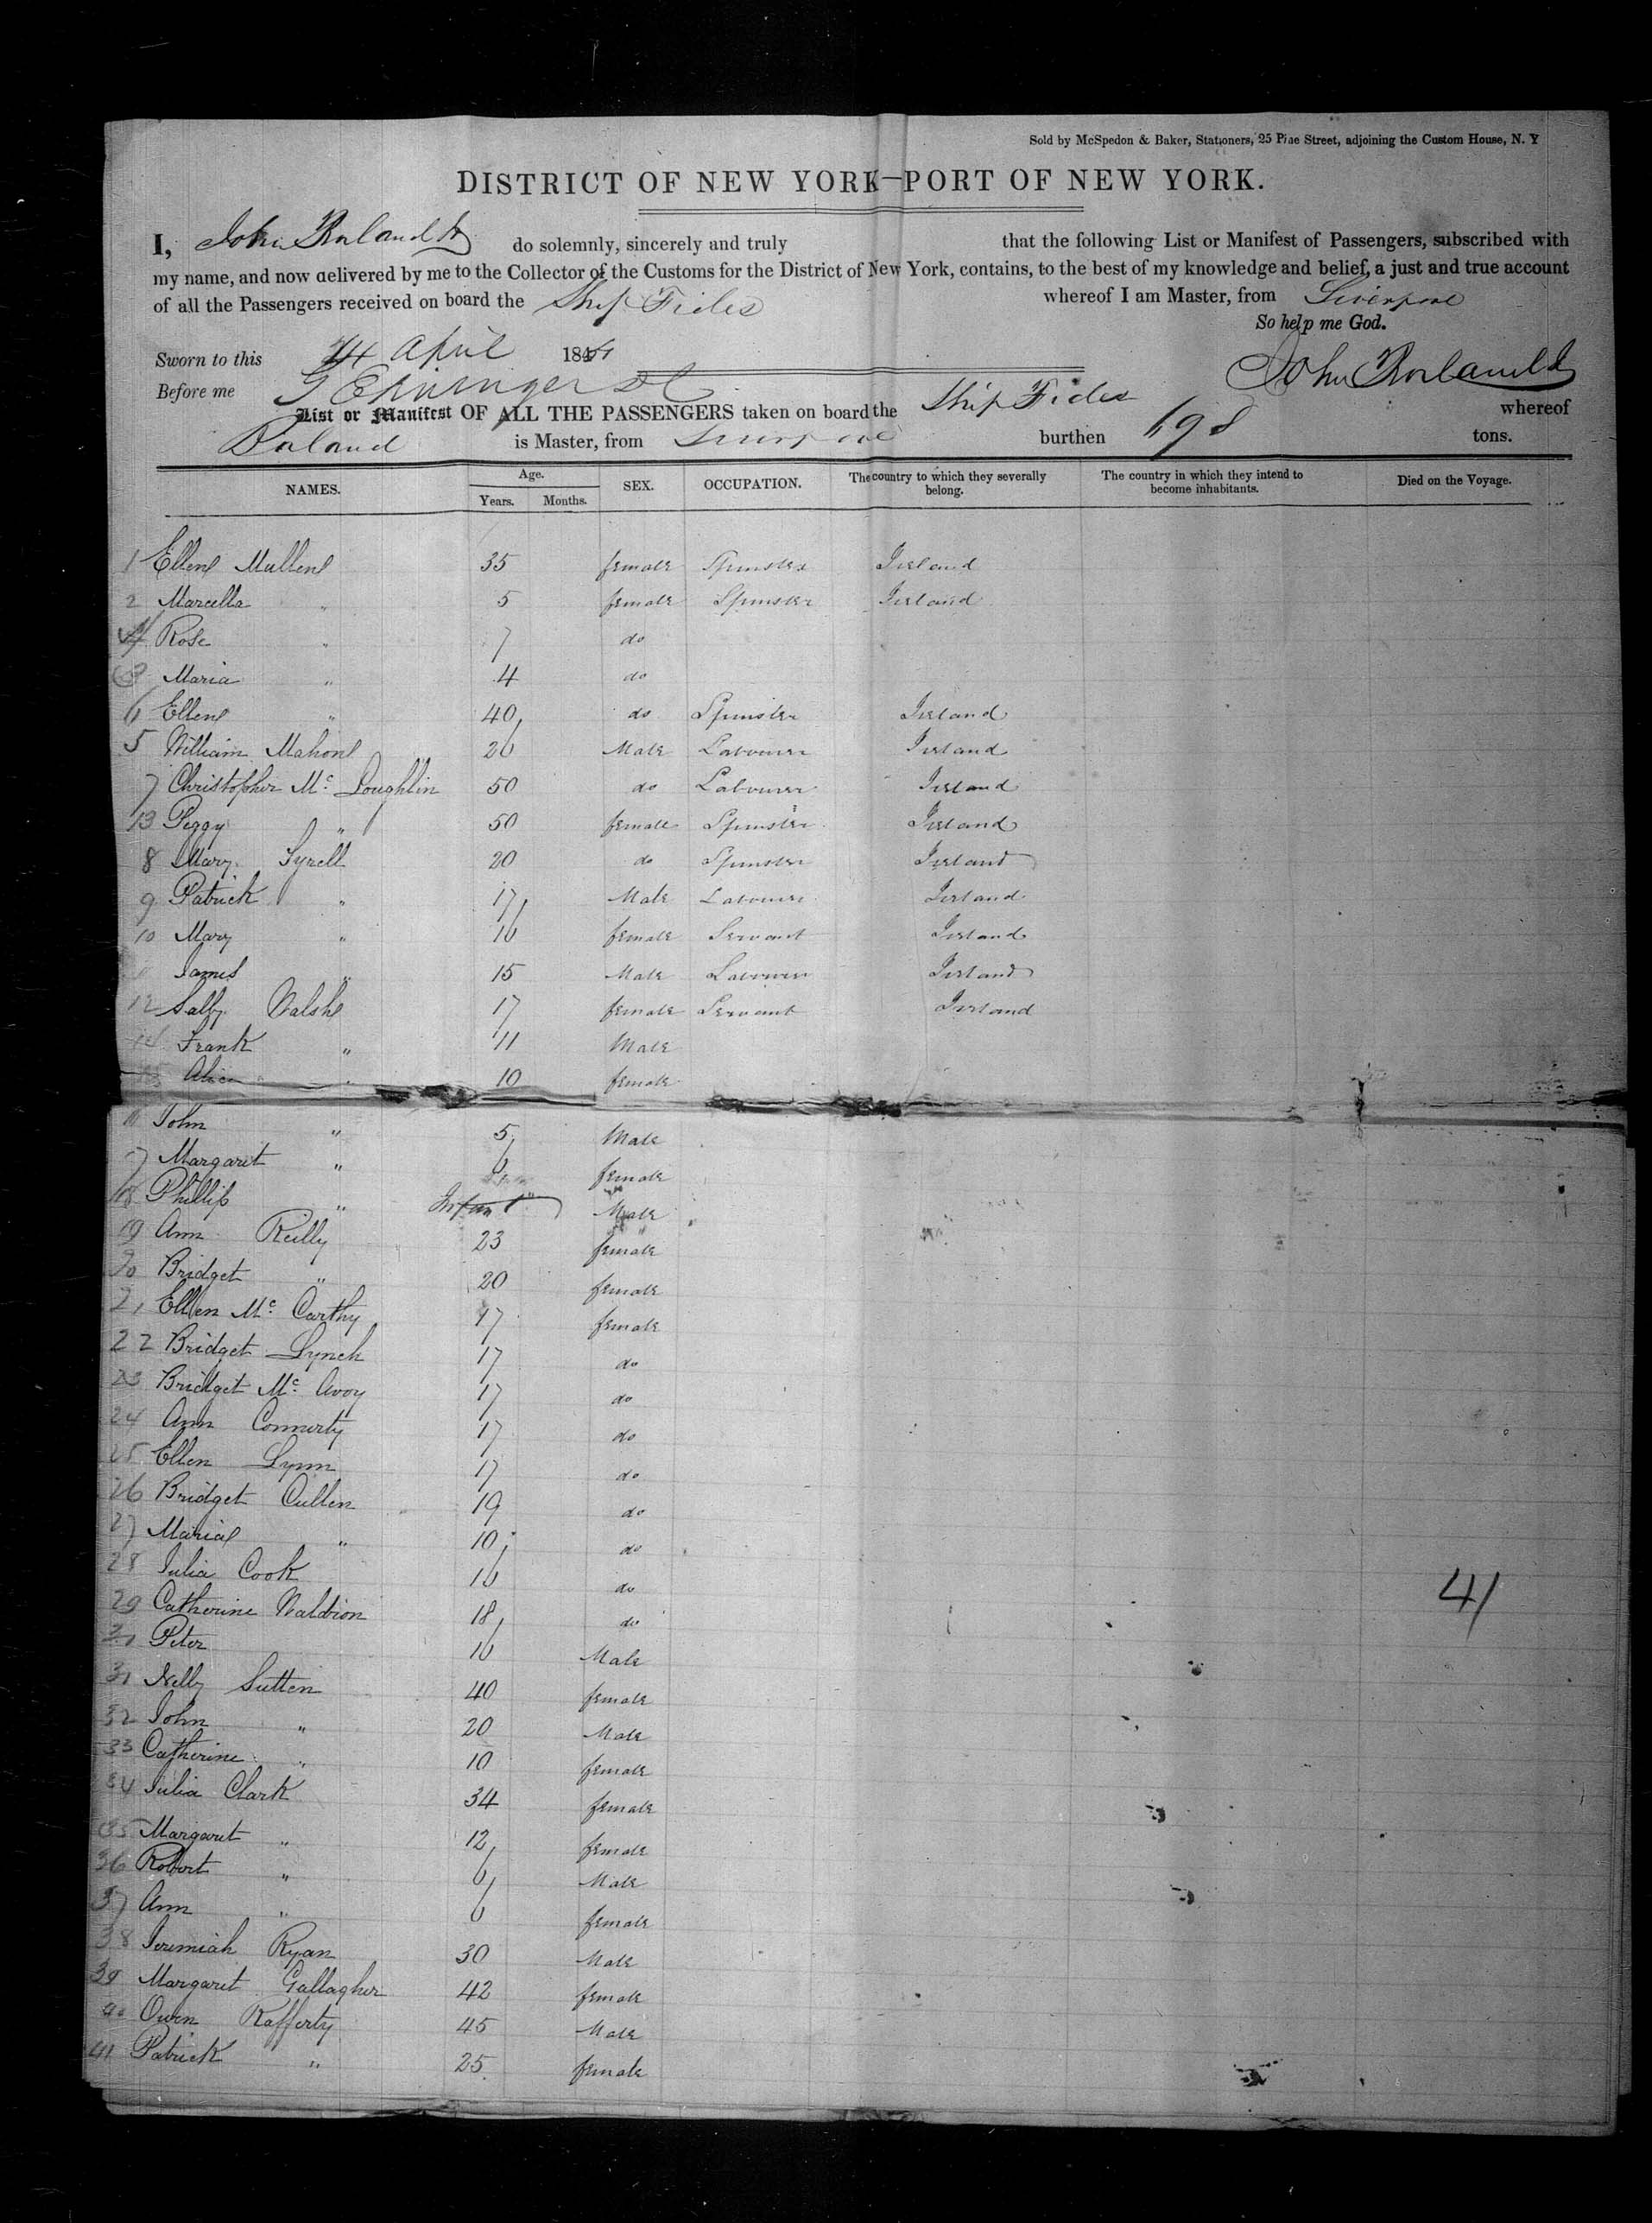 Sold by McSpedon & Baker, Stationers, 25 Pine Street, adjoining the Custom House, N. Y
DISTRICT OF NEW YORK—PORT OF NEW YORK.
I, John do solemnly, sincerely and truly that the following List or Manifest of Passengers, subscribed with
my name, and now delivered by me to the Collector of the Customs for the District of New York, contains, to the best of my knowledge and belief, a just and true account
of all the Passengers received on board the Ship Fides whereof I am Master, from Liverpool
So help me God.
Sworn to this April 18
John
Before me
List or Manifest OF ALL THE PASSENGERS taken on board the Ship Fides whereof
is Master, from Liverpool burthen 698 tons.
NAMES. Age. Years. Months. SEX. OCCUPATION. The country to which they severally belong. The country in which they intend to become inhabitants. Died on the Voyage.
1 Ellen Mullen 35 female Spinster Ireland
2 Marcella " 5 female Spinster Ireland
4 Rose " 7 do
3 Maria " 4 do
6 Ellen " 40 do Spinster Ireland
5 William Mahon 26 Male Labourer Ireland
7 Christopher Mc Loughlin 50 do Labourer Ireland
13 Peggy " 50 female Spinster Ireland
8 Mary Tyrell 20 do Spinster Ireland
9 Patrick " 17 Male Labourer Ireland
10 Mary " 16 female Servant Ireland
James " 15 Male Labourer Ireland
12 Sally Walsh 17 female Servant Ireland
14 Frank " 11 Male
Alice " 10 female
John " 5 Male
Margaret " 6 female
18 Phillip " Infant Male
19 Ann Reilly 23 female
20 Bridget " 20 female
21 Ellen Mc Carthy 17 female
22 Bridget Lynch 17 do
23 Bridget Mc Avoy 17 do
24 Ann Connerty 17 do
25 Ellen Lynn 17 do
26 Bridget Cullen 19 do
27 Maria " 10 do
28 Julia Cook 16 do
29 Catherine Waldrion 18 do
Peter 16 Male
31 Nelly Sutten 40 female
32 John " 20 Male
33 Catherine " 10 female
34 Julia Clark 34 female
35 Margaret " 12 female
36 Robert " 6 Male
37 Ann " 6 female
38 Jeremiah Ryan 30 Male
39 Margaret Gallagher 42 female
40 Owen Rafferty 45 Male
41 Patrick " 25 female
41